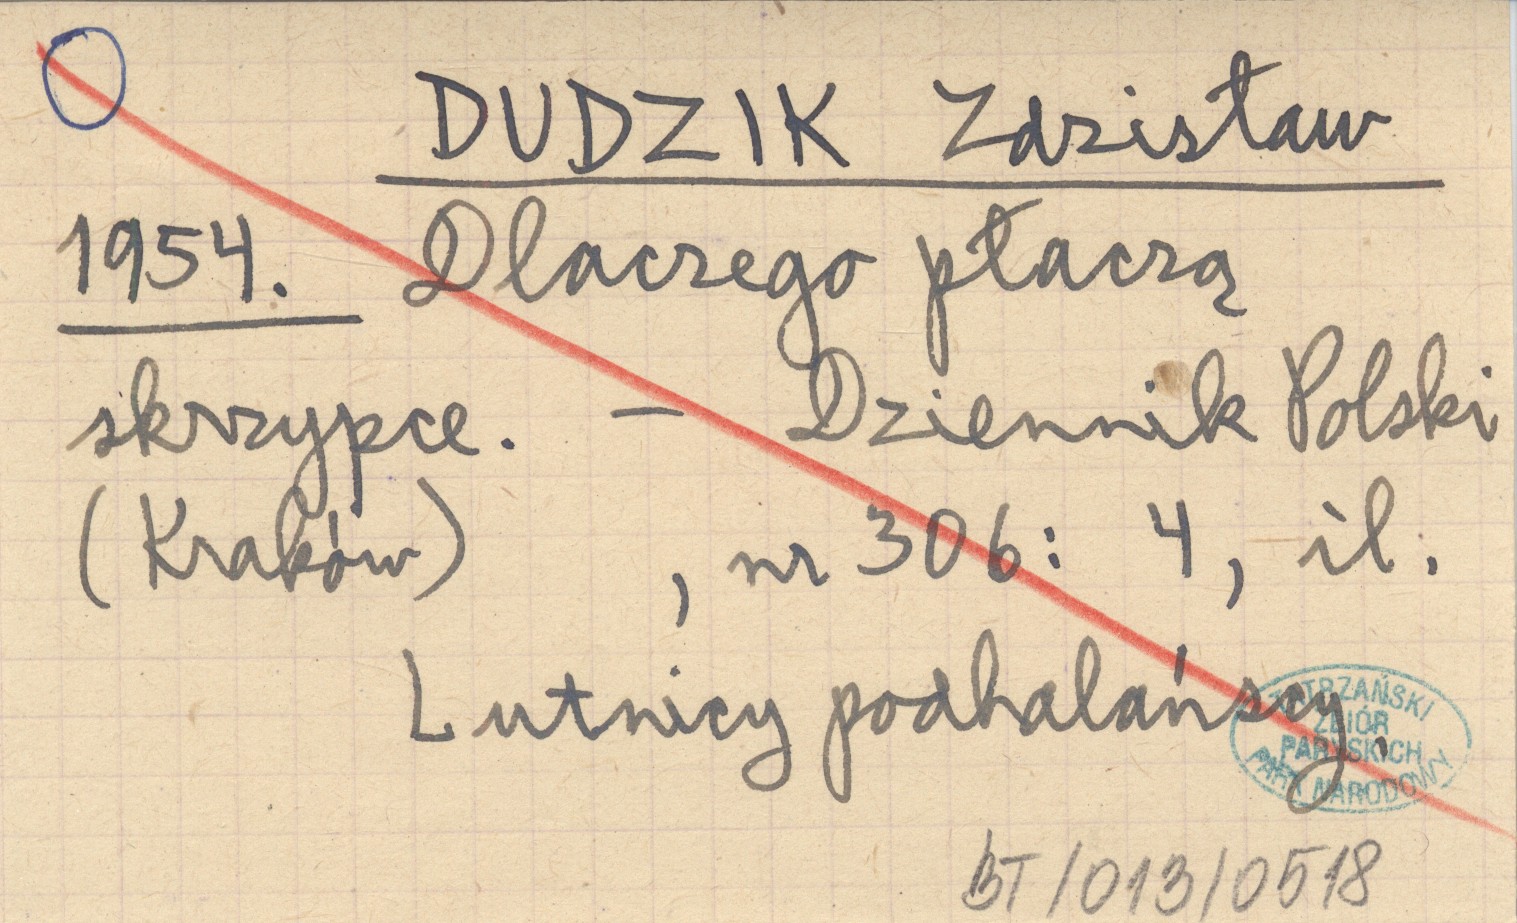 DUDZIK Zdzisław
1954. Dlaczego płaczą
skrzypce. – Dziennik Polski
(Kraków) , nr 306: 4, il.
Lutnicy podhalańscy.
TATRZAŃSKI
ZBIÓR
PARYSKICH
PARK NARODOWY
BT/013/0518